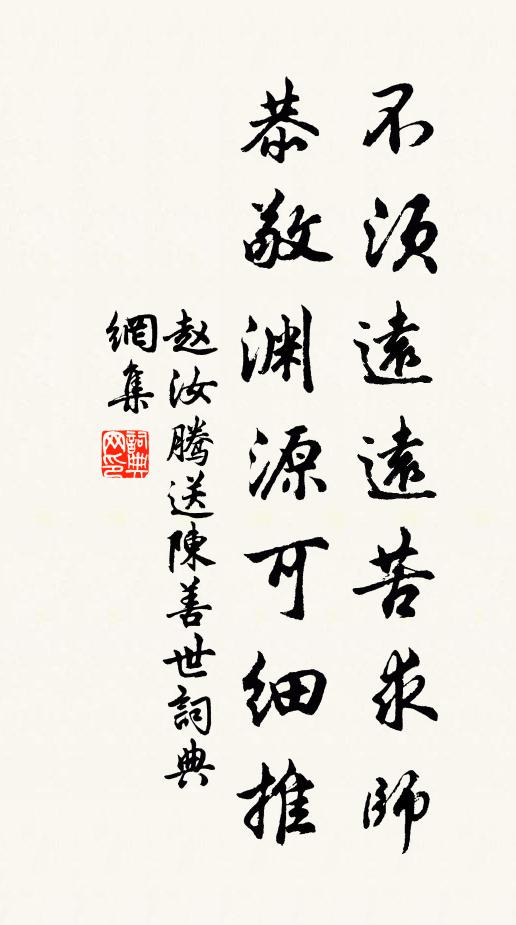 不須遠遠苦求師
恭敬渊源可细推
赵汝騰送陳善世詞典
網集
詞典
网印